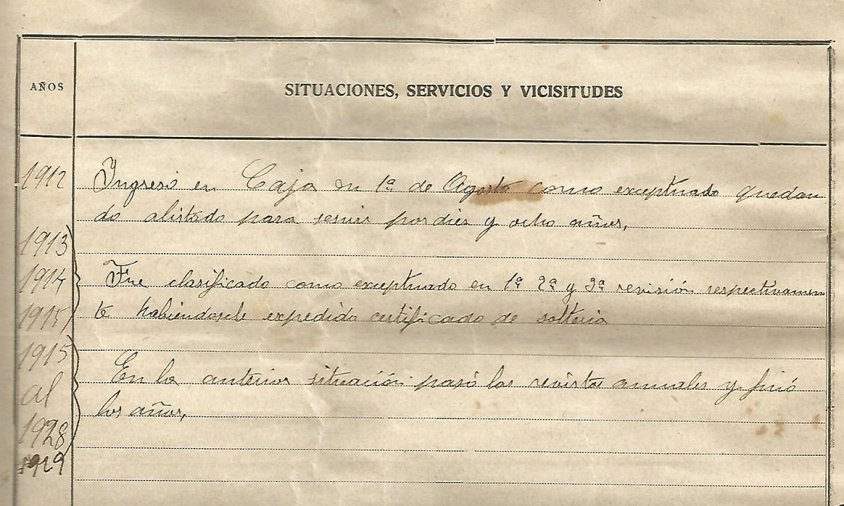 AÑOS
SITUACIONES, SERVICIOS Y VICISITUDES
1912 Ingresó en Caja en 1ª de Agosto como exceptuado quedan
do alistado para servir por diez y ocho años,
1913
1914 Fue clasificado como exceptuado en 1ª 2ª y 3ª revisión respectivamen
1915 te habiendosele expedido certificado de solteria
1915
al En la anterior situación pasó las revistas anuales y finó
1928 los años,
1929